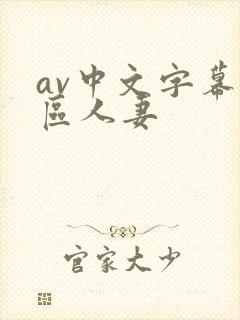 av中文字幕
區人妻
官家大少